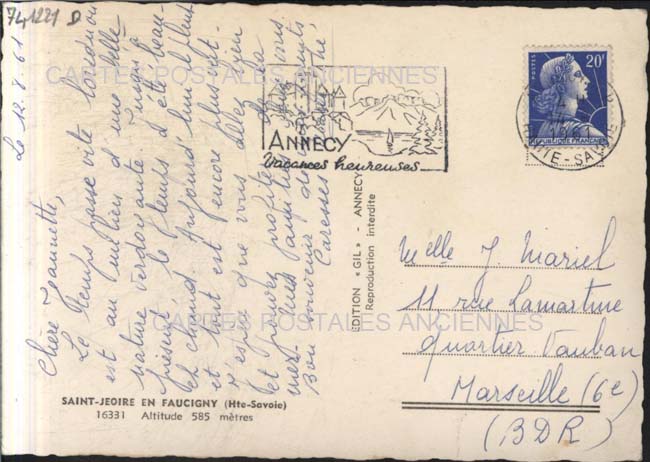 741221 D
Le 12.8.61
Chère Jeannette,
Le Temps passe vite lorsqu'on
est au milieu d'une belle
nature verdoyante jusqu'à
présent le temps d'été beau
et chaud. Aujourd'hui il pleut
et tout est encore plus vert.
J'espère que vous allez bien
et pouvez profiter de la
mer
Bon souvenir de
Caresses
SAINT-JEOIRE EN FAUCIGNY (Hte-Savoie)
16331 Altitude 585 mètres
EDITION «GIL» - ANNECY
Reproduction interdite
ANNECY
Vacances heureuses
POSTES
20F
REPUBLIQUE FRANÇAISE
HAUTE-SAVOIE
Melle J. Mariel
11 rue Lamartine
Quartier Vauban
Marseille (6e)
(BDR)
CARTES POSTALES ANCIENNES
CARTES POSTALES ANCIENNES